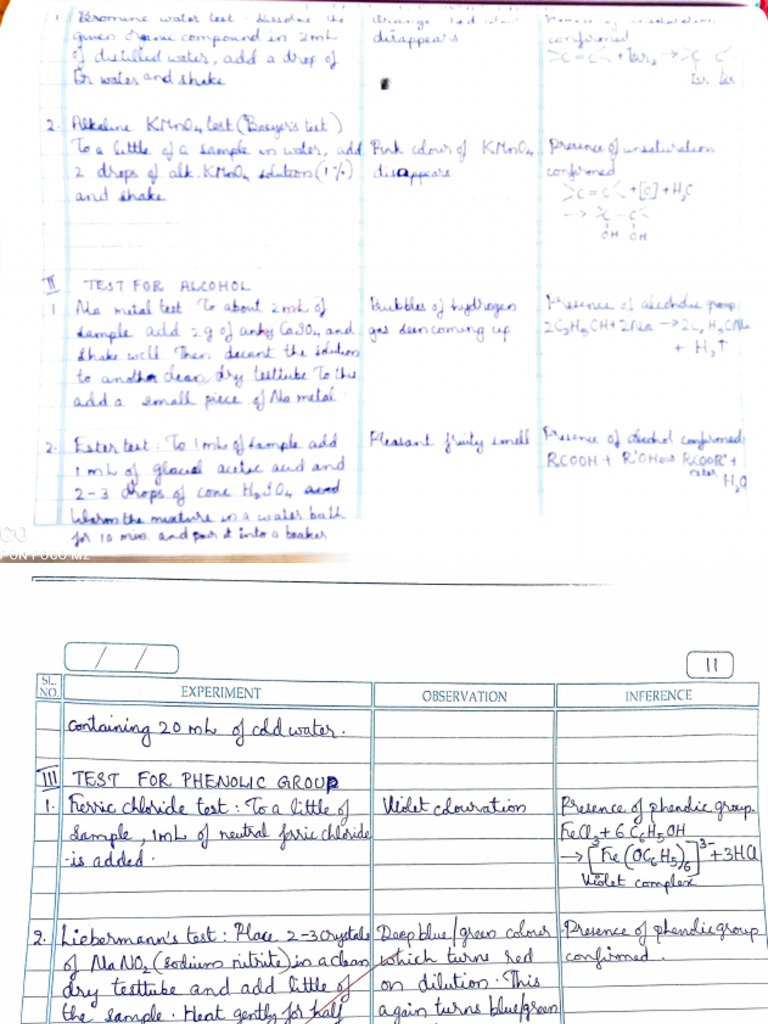 1. Bromine water test. Dissolve the
given organic compound in 2mL
of distilled water, add a drop of
Br water and shake
Orange red colour
disappears
Presence of unsaturation
confirmed
>C=C< + Br₂ → >C C<
Br Br
2. Alkaline KMnO₄ test (Baeyer's test)
To a little of a sample in water, add
2 drops of alk. KMnO₄ solution (1%)
and shake
Pink colour of KMnO₄
disappears
Presence of unsaturation
confirmed
>C=C< + [O] + H₂O
→ >C–C<
OH OH
II TEST FOR ALCOHOL
1 Na metal test To about 2mL of
sample add 2g of anhy CaSO₄ and
shake well Then decant the solution
to another clean dry testtube To this
add a small piece of Na metal.
Bubbles of hydrogen
gas seen coming up
Presence of alcoholic group
2C₂H₅OH + 2Na → 2C₂H₅ONa
+ H₂↑
2. Ester test. To 1mL of sample add
1mL of glacial acetic acid and
2-3 drops of conc H₂SO₄
Warm the mixture in a water bath
for 10 min. and pour it into a beaker
Pleasant fruity smell
Presence of alcohol confirmed
RCOOH + R'OH ⇌ RCOOR' +
ester H₂O
PON POCO M2
/ /
11
SL. NO. EXPERIMENT OBSERVATION INFERENCE
containing 20 mL of cold water.
III TEST FOR PHENOLIC GROUP
1. Ferric chloride test: To a little of
sample, 1mL of neutral ferric chloride
is added.
Violet colouration
Presence of phenolic group.
FeCl₃ + 6C₆H₅OH
→ 3[Fe(OC₆H₅)₆]³⁻ + 3HCl
Violet complex
2. Liebermann's test: Place 2-3 crystals
of NaNO₂ (sodium nitrite) in a clean
dry testtube and add little of
the sample. Heat gently for half
Deep blue/green colour
which turns red
on dilution. This
again turns blue/green
Presence of phenolic group
confirmed.